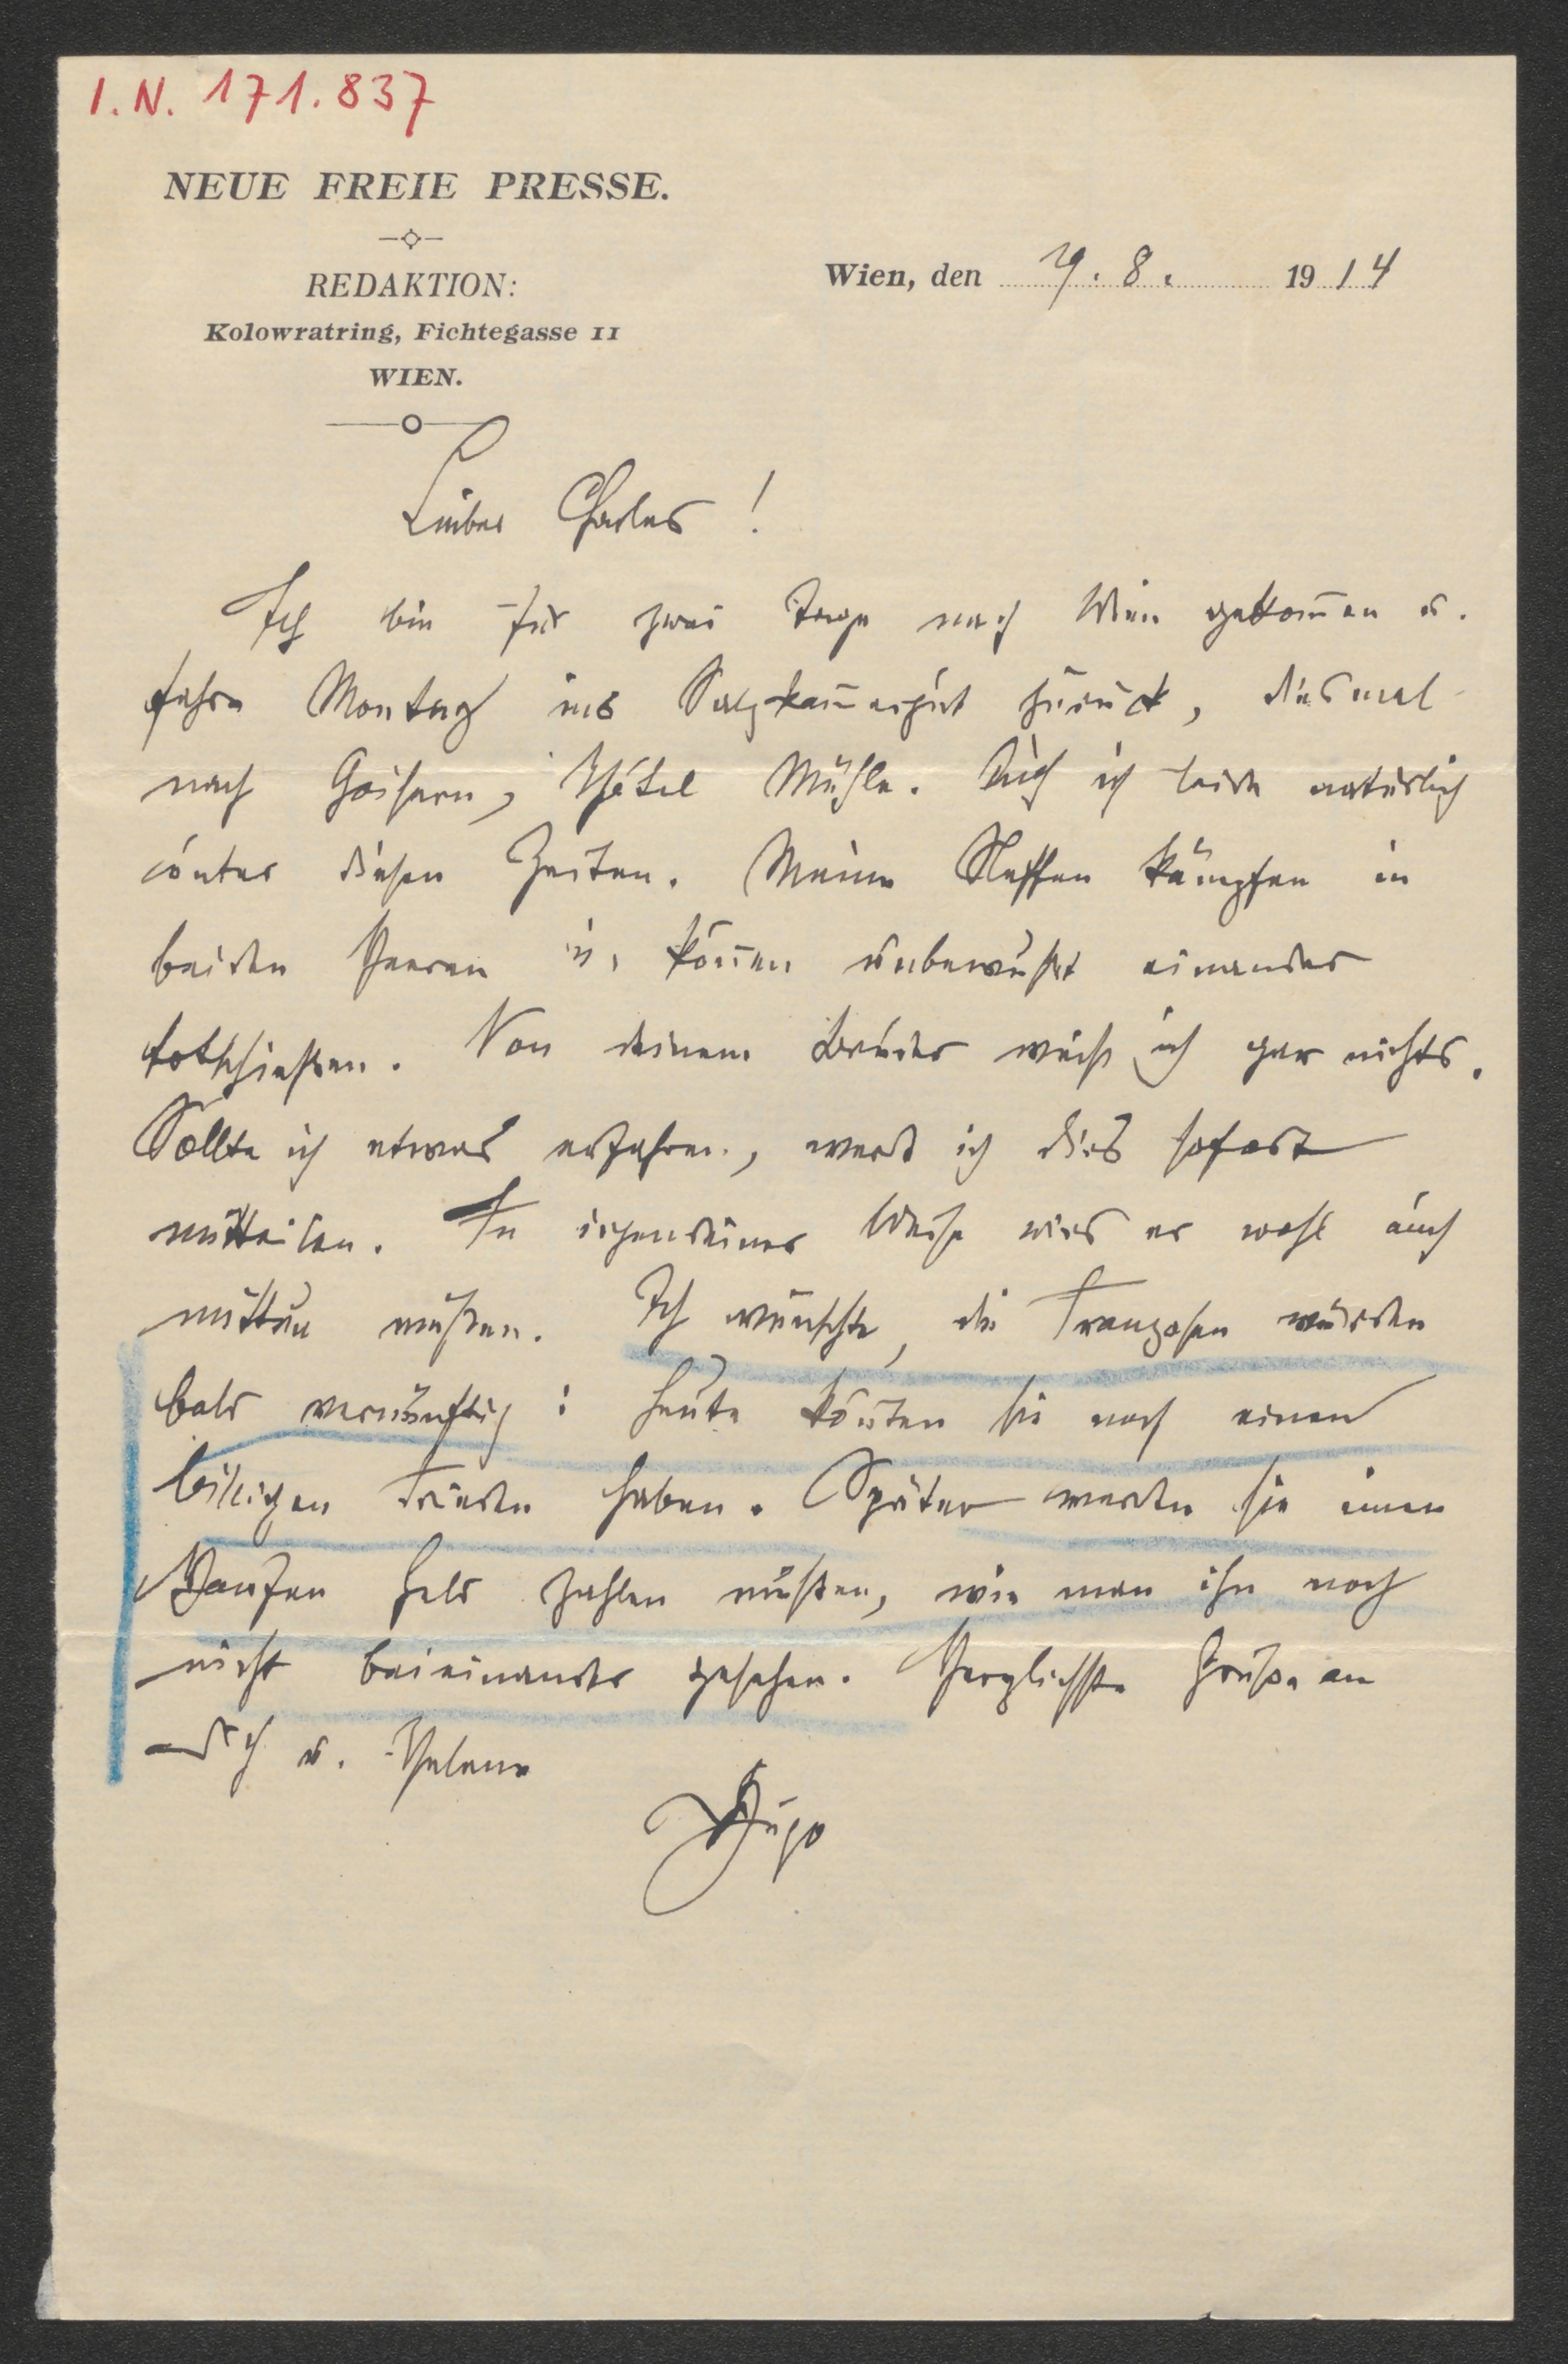 I. N. 171.837
NEUE FREIE PRESSE.
REDAKTION:
Kolowratring, Fichtegasse 11
WIEN.
Wien, den 29. 8. 1914
Lieber Charles!
Ich bin für zwei Tage nach Wien gekom̅en u.
fahre Montag ins Salzkam̅ergut zurück, diesmal
nach Goisern, Hôtel Mühle. Auch ich leide natürlich
unter diesen Zeiten. Meine Neffen kämpfen in
beiden Heeren u. kön̅en unbewußt einander
totschießen. Von deinem Bruder weiß ich gar nichts.
Sollte ich etwas erfahren, werd ich dies sofort
mitteilen. In irgendeiner Weise wird er wohl auch
mittun müßen. Ich wünschte, die Franzosen würden
bald vernünftig: heute kön̅ten sie noch einen
billigen Frieden haben. Später werden sie einen
Haufen Geld zahlen müßen, wie man ihn noch
nicht beieinander gesehen. Herzlichste Grüße an
dich u. Helene
Hugo